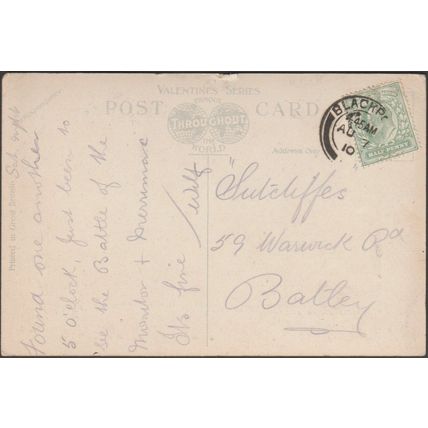 VALENTINES SERIES
FAMOUS
POST CARD
THROUGHOUT
THE
WORLD
Address Only
Printed in Great Britain
BLACKP
45AM
AU 7
10
HALF PENNY
Sutcliffes
59 Warwick Rd
Batley
Sat. night
Found one another
5 O'clock, Just been to
see the Battle of the
Monitor + Merrimac
Its fine / Wilf